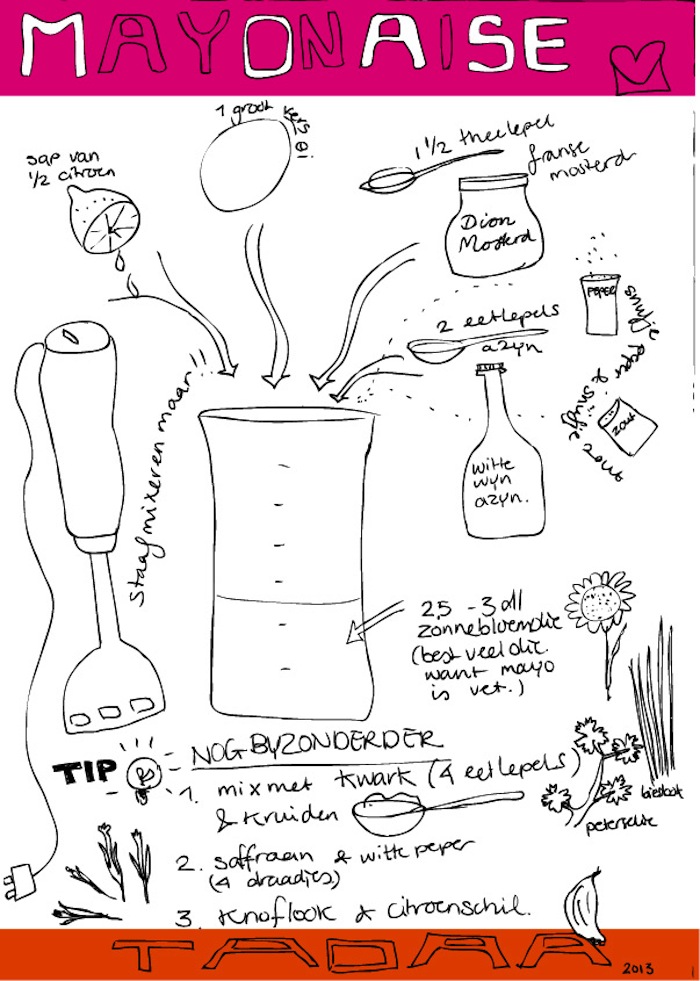 MAYONAISE
1 groot vers ei
sap van
1/2 citroen
1 1/2 theelepel
franse
mosterd
Dion
Mosterd
PEPER
snufje peper
& snufje
zout
ZOUT
2 eetlepels
azyn
witte
wyn
azyn.
staafmixeren maar!!
2,5 - 3 dl
zonnebloemolie
(best veel olie.
want mayo
is vet.)
TIP
NOG BYZONDERDER
1. mix met kwark (4 eetlepels)
& kruiden
bieslook
peterselie
2. saffraan & witte peper
(4 draadjes)
3. knoflook & citroenschil.
TADAAA
2013